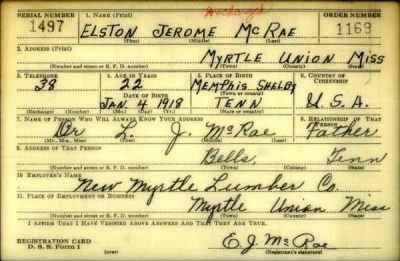 Discharged
SERIAL NUMBER 1. NAME (Print) ORDER NUMBER
1497 ELSTON JEROME MCRAE 1169
(First) (Middle) (Last)
2. ADDRESS (Print)
MYRTLE UNION MISS
(Number and street or R. F. D. number) (Town) (County) (State)
3. TELEPHONE 4. AGE IN YEARS 5. PLACE OF BIRTH 6. COUNTRY OF CITIZENSHIP
38 22 MEMPHIS SHELBY
DATE OF BIRTH (Town) (County)
JAN. 4 1918 TENN U.S.A.
(Exchange) (Number) (Mo.) (Day) (Yr.) (State or country)
7. NAME OF PERSON WHO WILL ALWAYS KNOW YOUR ADDRESS 8. RELATIONSHIP OF THAT PERSON
Dr L. J. McRae Father
(Mr., Mrs., Miss) (First) (Middle) (Last)
9. ADDRESS OF THAT PERSON
Bells, Tenn
(Number and street or R. F. D. number) (Town) (County) (State)
10. EMPLOYER'S NAME
New Myrtle Lumber Co.
11. PLACE OF EMPLOYMENT OR BUSINESS
Myrtle Union Miss
(Number and street or R. F. D. number) (Town) (County) (State)
I AFFIRM THAT I HAVE VERIFIED ABOVE ANSWERS AND THAT THEY ARE TRUE.
REGISTRATION CARD
D. S. S. Form 1
E. J. McRae
(Registrant's signature)